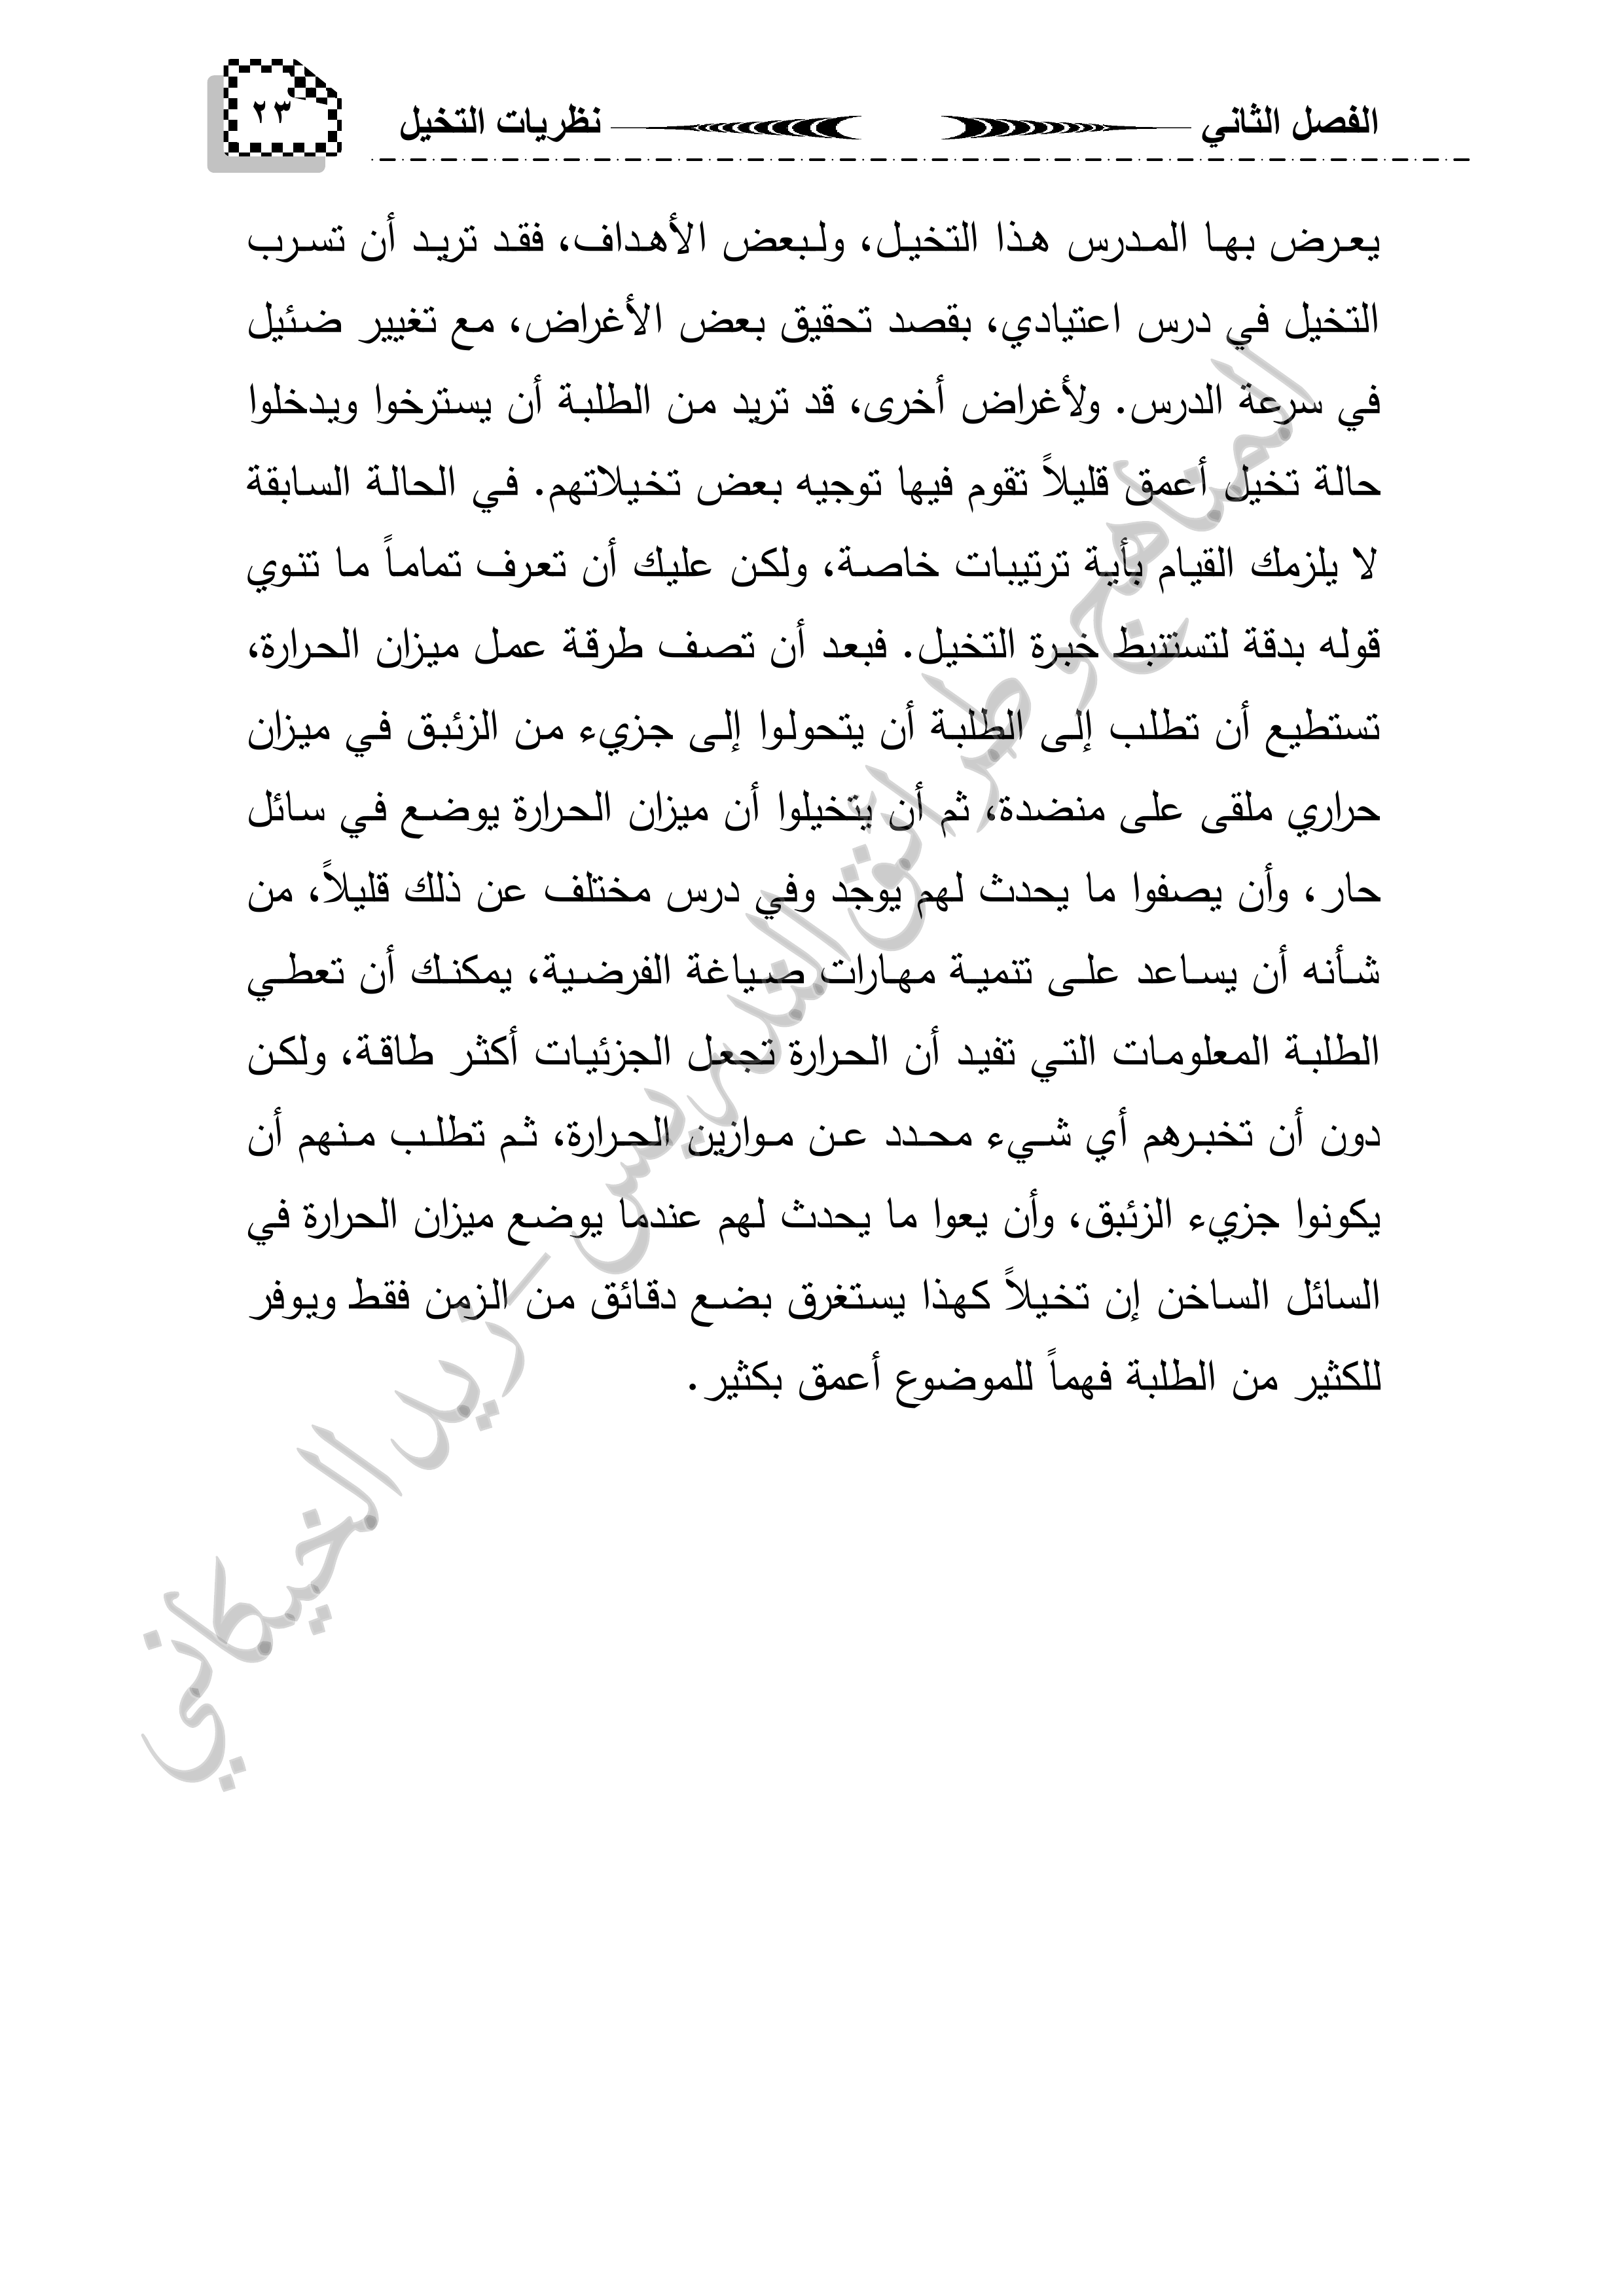 الفصل الثاني نظريات التخيل ٢٣
يعرض بها المدرس هذا التخيل، ولبعض الأهداف، فقد تريد أن تسرب
التخيل في درس اعتيادي، بقصد تحقيق بعض الأغراض، مع تغيير ضئيل
في سرعة الدرس. ولأغراض أخرى، قد تريد من الطلبة أن يسترخوا ويدخلوا
حالة تخيل أعمق قليلاً تقوم فيها توجيه بعض تخيلاتهم. في الحالة السابقة
لا يلزمك القيام بأية ترتيبات خاصة، ولكن عليك أن تعرف تماماً ما تنوي
قوله بدقة لتستنبط خبرة التخيل. فبعد أن تصف طرقة عمل ميزان الحرارة،
تستطيع أن تطلب إلى الطلبة أن يتحولوا إلى جزيء من الزئبق في ميزان
حراري ملقى على منضدة، ثم أن يتخيلوا أن ميزان الحرارة يوضع في سائل
حار، وأن يصفوا ما يحدث لهم يوجد وفي درس مختلف عن ذلك قليلاً، من
شأنه أن يساعد على تنمية مهارات صياغة الفرضية، يمكنك أن تعطي
الطلبة المعلومات التي تفيد أن الحرارة تجعل الجزئيات أكثر طاقة، ولكن
دون أن تخبرهم أي شيء محدد عن موازين الحرارة، ثم تطلب منهم أن
يكونوا جزيء الزئبق، وأن يعوا ما يحدث لهم عندما يوضع ميزان الحرارة في
السائل الساخن إن تخيلاً كهذا يستغرق بضع دقائق من الزمن فقط ويوفر
للكثير من الطلبة فهماً للموضوع أعمق بكثير.
المناهج و طرائق التدريس – زيد الخيكاني